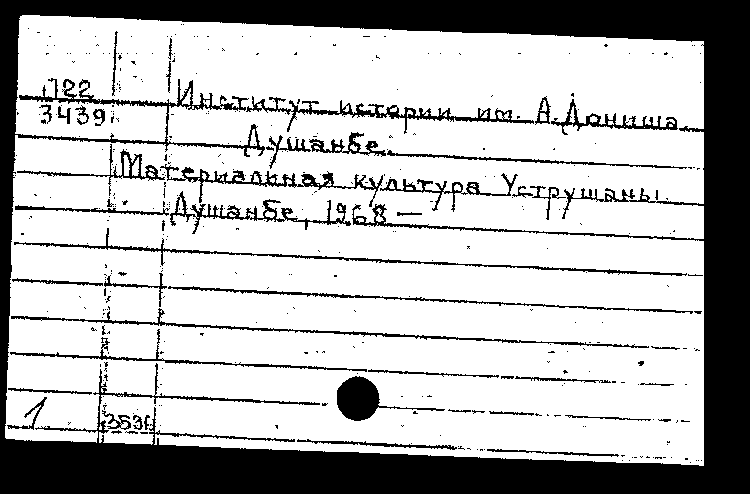 122
3439
Институт истории им. А. Дониша.
Душанбе.
Материальная культура Уструшаны
Душанбе, 1968 —
1